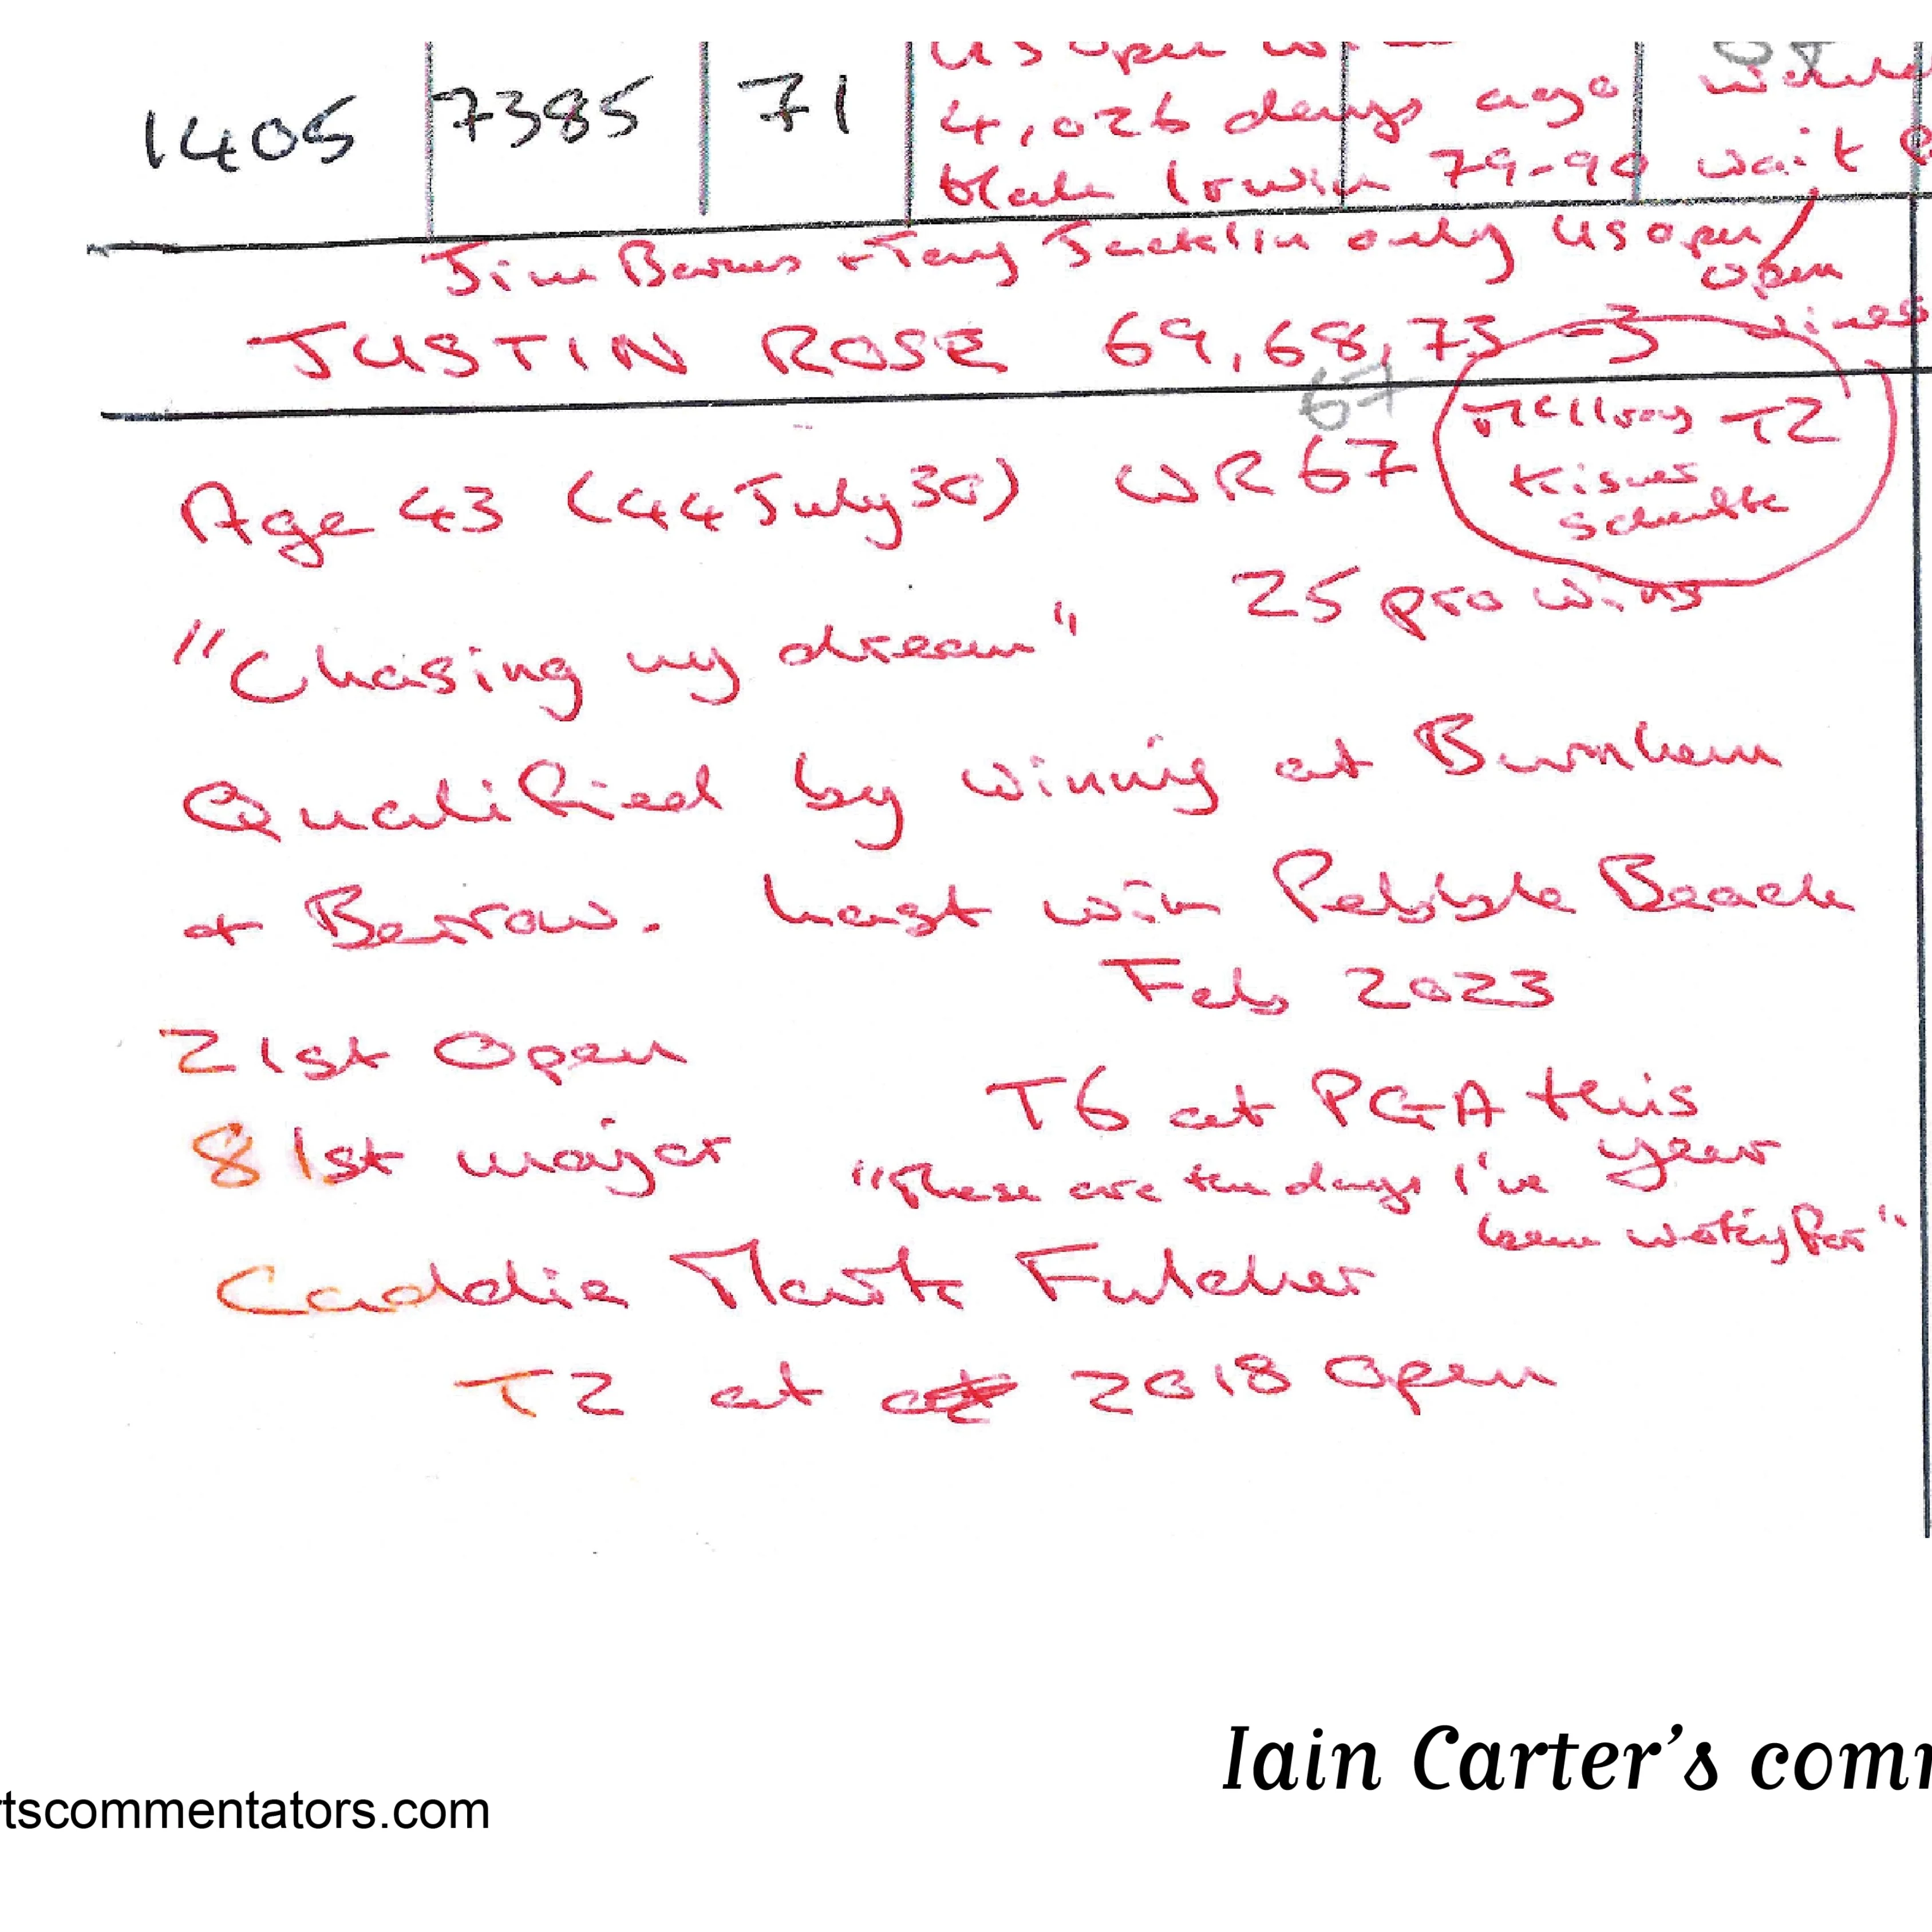 1405 7385 71
US Open
4,026 days ago
Hale Irwin 79-90 wait
Jim Barnes + Tony Jacklin only US Open/
Open
JUSTIN ROSE 69, 68, 73 -3
67
McIlroy T2
Kisner
Schauffele
Age 43 (44 July 30) WR 67
25 pro wins
"Chasing my dream"
Qualified by winning at Burnham
+ Berrow. Last win Pebble Beach
Feb 2023
21st Open
T6 at PGA this
year
81st major
"These are the days I've
been waiting for"
Caddie Mark Fulcher
T2 at 2018 Open
Iain Carter's comm
tscommentators.com